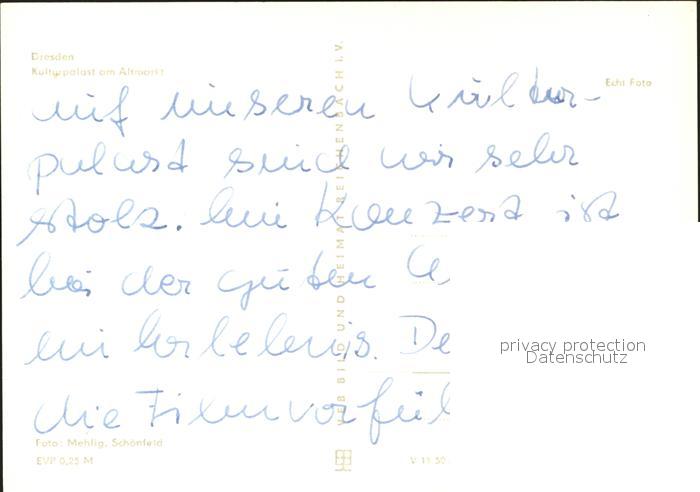 Dresden
Kulturpalast am Altmarkt
Echt Foto
auf unseren Kultur-
palast sind wir sehr
stolz. Ein Konzert ist
bei der guten
ein Erlebnis.
die Filmvorfüh
VEB BILD UND HEIMAT REICHENBACH I.V.
privacy protection
Datenschutz
Foto: Mehlig, Schönfeld
EVP 0,25 M
V 11 50